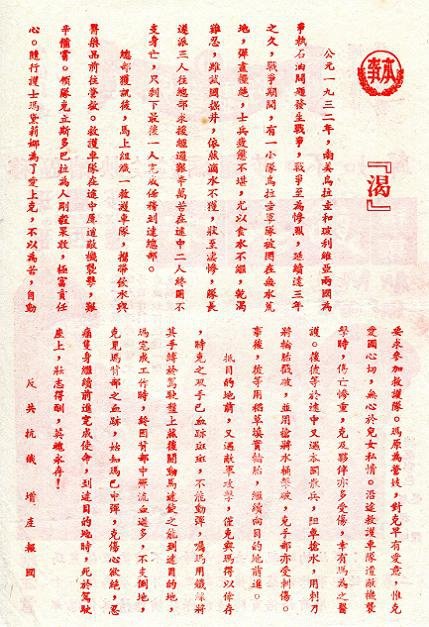 本事
『渴』
公元一九三二年，南美烏拉圭和玻利維亞兩國為
爭執石油問題發生戰爭，戰爭至為慘烈，延續達三年
之久，戰爭期間，有一小隊烏拉圭軍隊被困在無水荒
地，彈盡糧絕，士兵疲憊不堪，尤以食水不繼，乾渴
難忍，雖就困掘井，依然滴水不獲，狀至淒慘，隊長
遂派三人往總部求援經過艱辛萬苦在途中二人終因不
支身亡，只剩下最後一人完成任務到達總部。
總部獲訊後，馬上組織一救護車隊，攜帶飲水與
醫藥品前往營救。救護車隊在途中屢遭敵機襲擊，艱
辛備嘗。領隊克立斯多巴拉為人剛強果敢，極富責任
心。隨行護士瑪黛莉娜為了愛上克，不以為苦，自動
要求參加救護隊。瑪原為營妓，對克早有愛意，惟克
愛國心切，無心於兒女私情。沿途救護車隊遭敵機襲
擊時，傷亡慘重，克及夥伴亦多受傷，幸有瑪為之醫
護。後彼等於途中又遇本國散兵，阻車搶水，用刺刀
將輪胎戳破，並用槍將水桶擊破，克手部亦受刺傷。
事後，彼等用稻草填實輪胎，繼續向目的地前進。
抵目的地前，又遇敵軍攻擊，僅克與瑪得以倖存
，時克之双手已血跡斑斑，不能動彈，囑瑪用鐵絲將
其手縛於駕駛盤上後開動馬達使之能到達目的地，
瑪完成工作時，終因背部中彈流血過多，不支倒地，
克見瑪背部之血跡，始知瑪已中彈，克傷心欲絕，忍
痛隻身繼續前進完成使命，到達目的地時，死於駕駛
座上，壯志得酬，英魂永存！
反共抗俄 增產報國